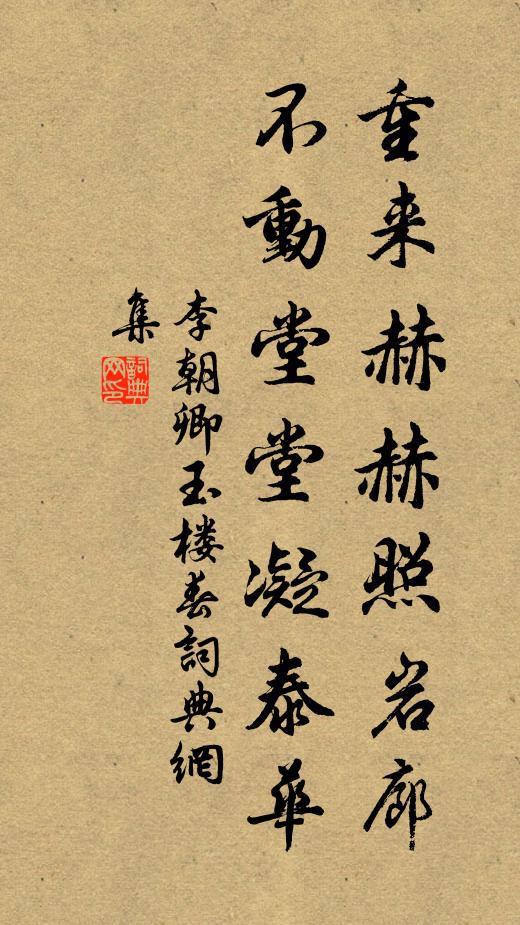 重来赫赫照岩廊
不動堂堂凝泰華
李朝卿玉楼春詞典網
集
詞典
网印